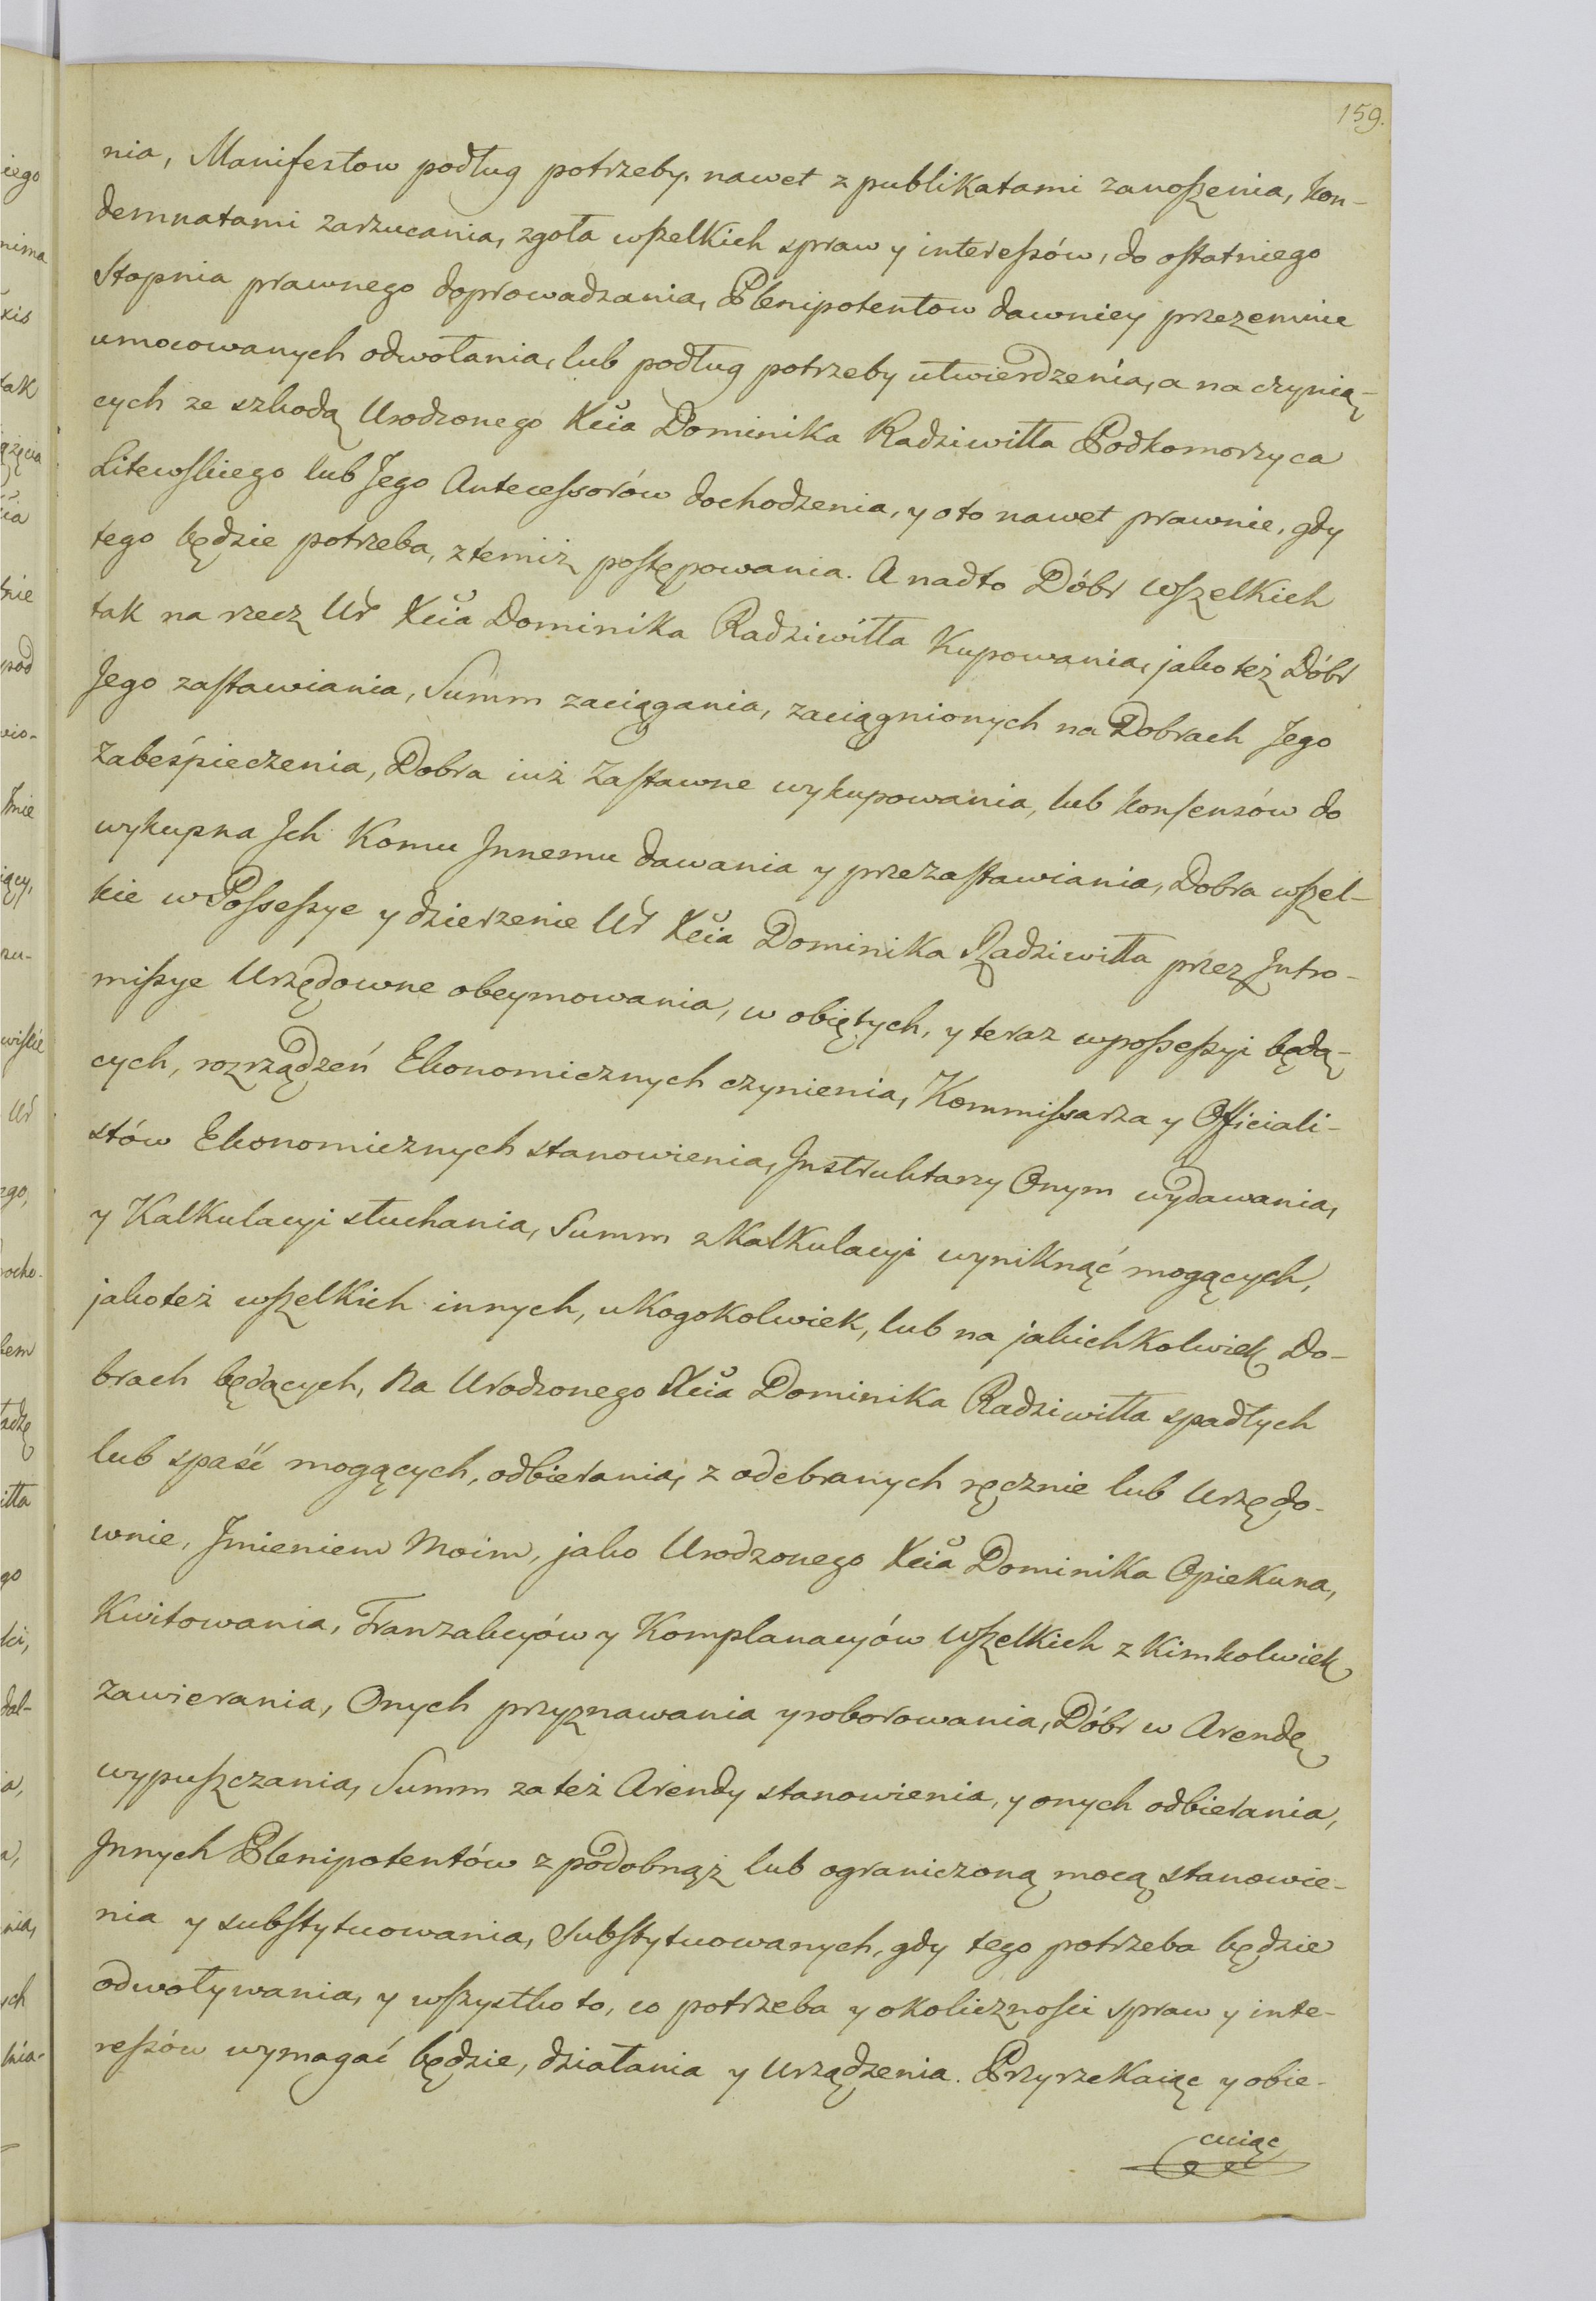 159.
nia, Manifestow podług potrzeby nawet z publikatami zanoszenia, kon-
demnatami zarzucania, zgoła wszelkich spraw y interessów, do ostatniego
stopnia prawnego doprowadzania, Plenipotentow dawniey przezemnie
umocowanych odwołania, lub podług potrzeby utwierdzenia, a na czynią-
cych ze szkodą Urodzonego Xcia Dominika Radziwiłła Podkomorzyca
Litewskiego lub Jego Antecessorów dochodzenia, y oto nawet prawnie, gdy
tego będzie potrzeba, z temiż postępowania. A nadto Dóbr wszelkich
tak na rzecz Ur Xcia Dominika Radziwiłła Kupowania, jako też Dóbr
Jego zastawiania, Summ zaciągania, zaciągnionych na Dobrach Jego
zabeśpieczenia, Dobra iuż Zastawne wykupowania, lub konsensów do
wykupna Jch Komu Jnnemu dawania y przezastawiania, Dobra wszel-
kie w Possessye y dzierzenie Ur Xcia Dominika Radziwiłła przez Jntro-
missye Urzędowne obeymowania, w obiętych, y teraz w possessyi będą-
cych, rozrządzeń Ekonomicznych czynienia, Kommissarza y Officiali-
stów Ekonomicznych stanowienia, Jnstruktarzy Onym wydawania,
y Kalkulacyi słuchania, Summ z Kalkulacyi wyniknąć mogących,
jako też wszelkich innych, u Kogokolwiek, lub na jakichkolwiek Do-
brach będących, Na Urodzonego Xcia Dominika Radziwiłła spadłych
lub spaść mogących, odbierania, z odebranych ręcznie lub Urzędo-
wnie, Jmieniem Moim, jako Urodzonego Xcia Dominika Opiekuna,
Kwitowania, Tranzakcyów y Komplanacyów wszelkich z Kimkolwiek
zawierania, Onych przyznawania y roborowania, Dóbr w Arendę
wypuszczania, Summ za też Arendy stanowienia, y onych odbierania,
Jnnych Plenipotentów z podobnąż lub ograniczoną mocą stanowie-
nia y substytuowania, Substytuowanych, gdy tego potrzeba będzie
odwoływania, y wszystko to, co potrzeba y okoliczności spraw y inte-
ressów wymagać będzie, działania y Urządzenia. Przyrzekaiąc y obie-
cuiąc